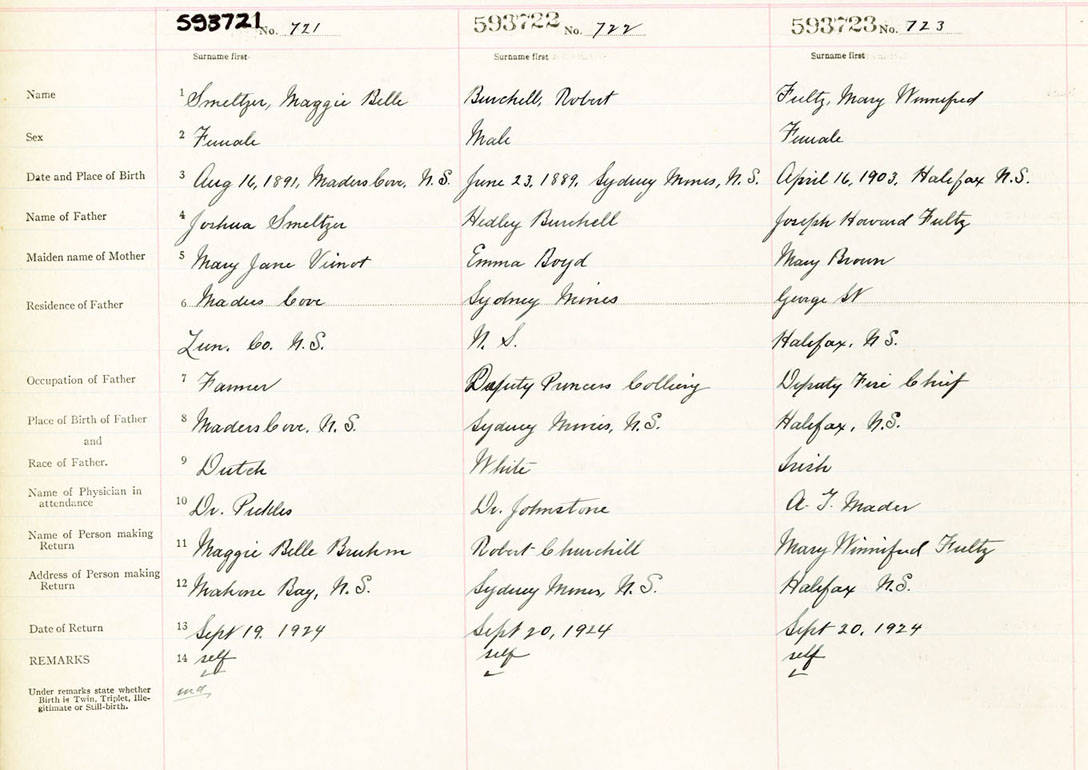 593721 No. 721 593722 No. 722 593723 No. 723
Surname first Surname first Surname first
Name 1 Smeltzer, Maggie Belle Burchell, Robert Fultz, Mary Winnifred
Sex 2 Female Male Female
Date and Place of Birth 3 Aug 16, 1891, Maders Cove, N.S. June 23, 1889, Sydney Mines, N.S. April 16, 1903, Halifax N.S.
Name of Father 4 Joshua Smeltzer Hedley Burchell Joseph Howard Fultz
Maiden name of Mother 5 Mary Jane Vienot Emma Boyd Mary Brown
Residence of Father 6 Maders Cove Sydney Mines George St
Lun. Co. N.S. N. S. Halifax, N.S.
Occupation of Father 7 Farmer Deputy Princess Colliery Deputy Fire Chief
Place of Birth of Father 8 Maders Cove, N.S. Sydney Mines, N.S. Halifax, N.S.
and
Race of Father. 9 Dutch White Irish
Name of Physician in
attendance 10 Dr. Pickles Dr. Johnstone A. F. Mader
Name of Person making
Return 11 Maggie Belle Bruhm Robert Churchill Mary Winnifred Fultz
Address of Person making
Return 12 Mahone Bay, N.S. Sydney Mines, N.S. Halifax N.S.
Date of Return 13 Sept 19, 1924 Sept 20, 1924 Sept 20, 1924
REMARKS 14 self self self
Under remarks state whether
Birth is Twin, Triplet, Ille-
gitimate or Still-birth.